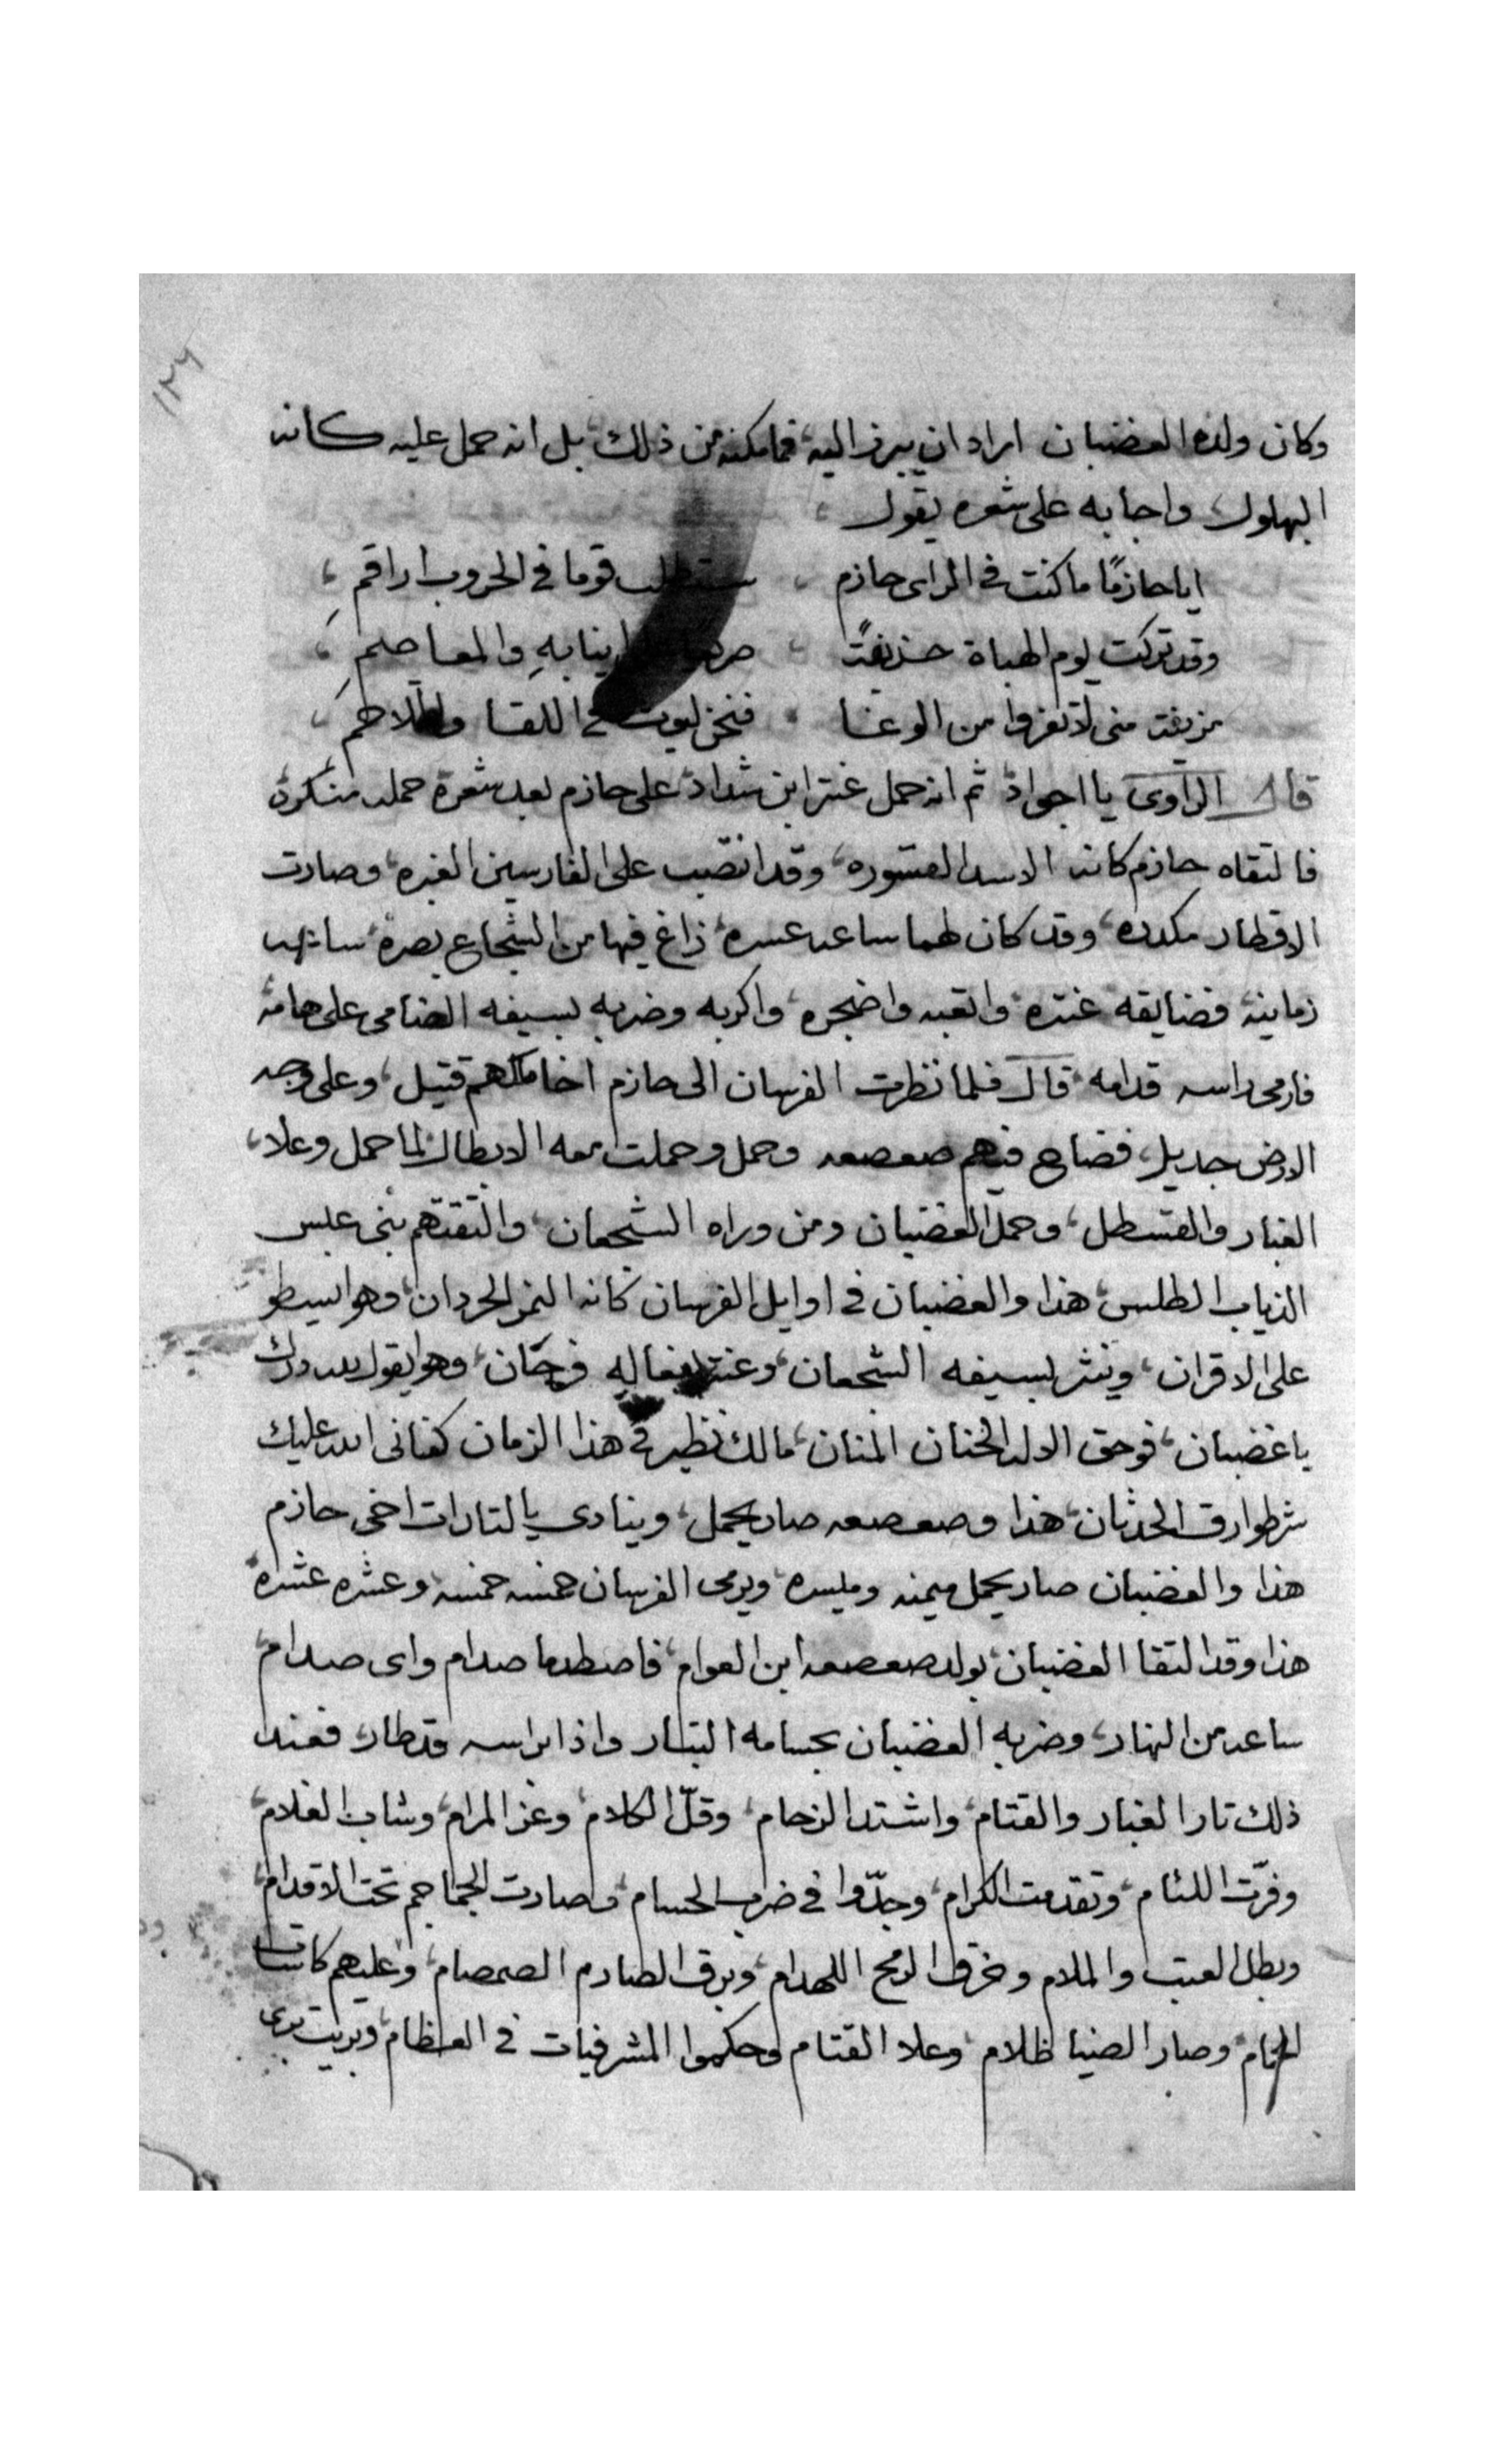 ١٢٦
وكان ولده الغضبان اراد ان يبرز اليه فما مكنه من ذلك بل انه حمل عليه كانه
البهلول واجابه على شعره يقول
ايا حازمًا ما كنت فى الراى حازم قوما فى الحروب اراقم
وقد تركت يوم الهباة حذيفتً والمعاصم
منى لا تفزوا من الوغا فنحن ليوث فى اللقا
قال الراوى يا اجواد ثم انه حمل عنتر ابن شداد على حازم بعد شعره حمله منكرة
فالتقاه حازم كانه الاسد القسوره وقد انصّب على الفارسين الغبره وصارت
الاقطار مكدره وقد كان لهما ساعه عسره زاغ فيها من الشجاع بصره
فضايقه عنتره واتعبه واضجره واكربه وضربه بسيفه الضامى على هامته
فارمى راسه قدامه قال فلما نظرت الفرسان الى حازم اخا قتيل وعلى وجه
الارض جديل فصاح فيهم صعصعه وحمل وحملت معه الابطال لما حمل وعلا
الغبار والقسطل وحمل الغضبان ومن وراه الشجعان والتقتهم بنى عبس
الذياب الطلس هذا والغضبان فى اوايل الفرسان كانه النمر الحردان وهو يسطو
على الاقران وينثر بسيفه الشجعان وعنتر بفعاله فرحان وهو يقول لله درك
يا غضبان فوحق الاله الحنان المنان مالك نظير فى هذا الزمان كفانى الله عليك
شر طوارق الحدثان هذا وصعصعه صار يحمل وينادى يا لتارات اخى حازم
هذا والغضبان صار يحمل ميمنه وميسره ويرمى الفرسان خمسه خمسه وعشره عشره
هذا وقد التقا الغضبان بولد صعصعه ابن العوام فاصطدما صدام واى صدام
ساعه من النهار وضربه الغضبان بحسامه البتار واذا براسه قد طار فعند
ذلك تار الغبار والقتام واشتد الزحام وقلّ الكلام وعز المرام وشاب الغلام
وفرّت اللئام وتقدمت الكرام وجدّوا فى ضرب الحسام وصارت الجماجم تحت الاقدام
وبطل العتب والملام وخرق الرمح اللهدام وبرق الصارم الصمصام وعليهم كاسات
الحمام وصار الضيا ظلام وعلا القتام وحكموا المشرفيات فى العظام وبريت برى